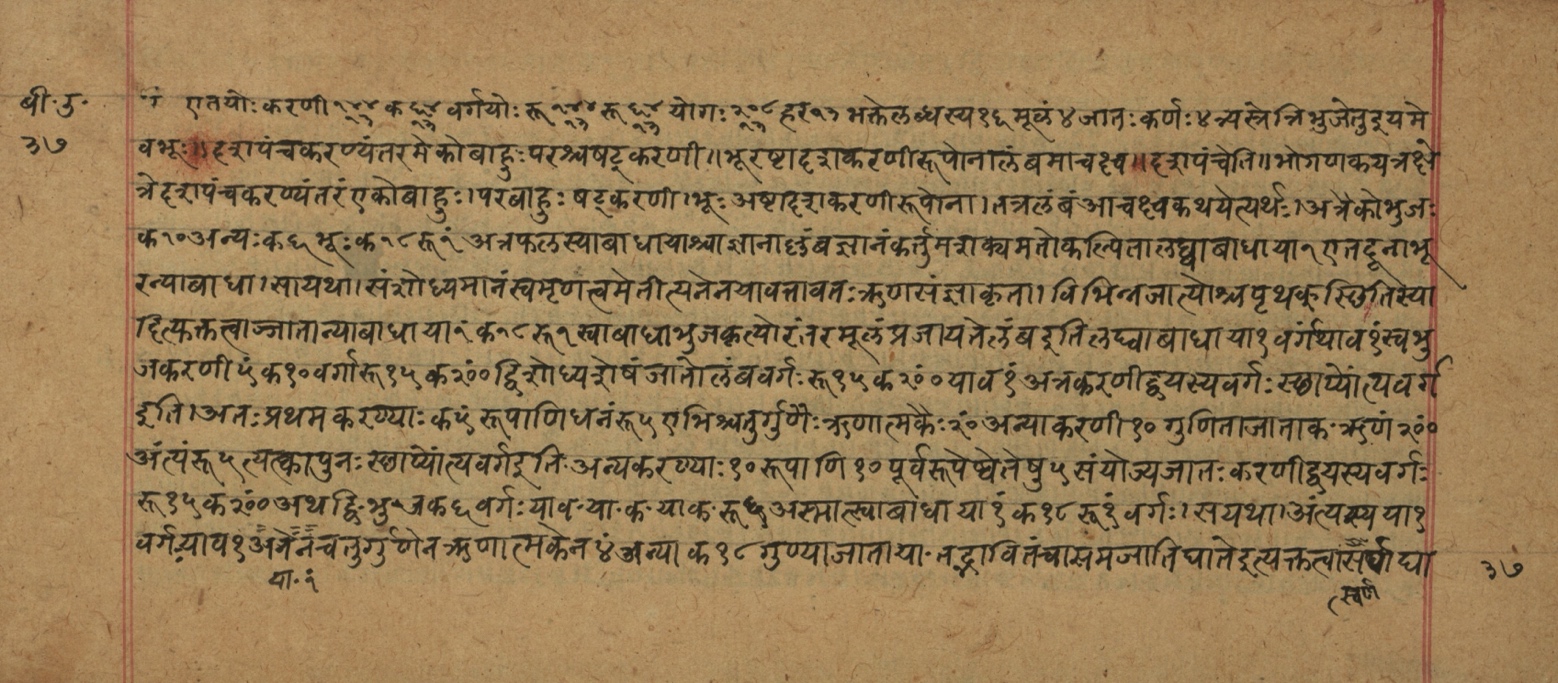 बी॰उ॰
३७
एतयोः करणी क वर्गयोः रू रू योगः हर भक्तेलब्धस्य१६मूलं४जातः कर्णः४त्र्यस्त्रेत्रिभुजेतुद्वयमे
वभूः॥दशपंचकरण्यंतरमेकोबाहुःपरश्चषट्करणी॥भूरष्टादशकरणीरूपोनालंबमाचक्ष्व॥दशपंचेति॥भोगणकयत्रक्षे
त्रेदशपंचकरण्यंतरंएकोबाहुः।परबाहुः षट्करणी।भूः अष्टादशकरणीरूपोना।तत्रलंबंआचक्ष्वकथयेत्यर्थः।अत्रैकोभुजः
क१०अन्यःक६भूःक१८रू१ं अत्रफलस्याबाधायाश्चाज्ञानाल्लंबज्ञानंकर्तुमशक्यमतोकल्पितालघ्वाबाधाया१एतदूनाभू
रन्याबाधा।सायथा।संशोध्यमानंस्वमृणत्वमेतीत्यनेनयावत्तावतःऋणसंज्ञाकृता।विभिन्नजात्योश्चपृथक्स्छितिस्या
दित्युक्तत्वाज्जातान्याबाधाया१ंक१८रू१स्वाबाधाभुजकृत्योरंतरमूलंप्रजायतेलंबइतिलघ्वाबाधाया१वर्गयाव१ंस्वभु
जकरणी५ंक१०वर्गारू१५क२०ं०द्विशोध्यशेषंजातोलंबवर्गःरू१५क२०ं०याव१ंअत्रकरणीद्वयस्यवर्गःस्छाप्योंत्यवर्ग
इति।अतःप्रथमकरण्याःक५ंरूपाणिधनंरू५एभिश्चतुर्गुणैःऋणात्मकैः२०ंअन्याकरणी१०गुणिताजाताक॰ऋणं२०ं०
अंत्यंरू५त्यत्कापुनःस्छाप्योंत्यवर्गइति॰अन्यकरण्याः१०रूपाणि१०पूर्वरूपेष्वेतेषु५संयोज्यजातःकरणीद्वयस्यवर्गः
रू१५क२०ं०अथद्वि॰भुजक६वर्गःयाव॰या॰क॰याक॰रू६अस्मात्स्वाबाधाया१ंक१८रू१ंवर्गः।सयथा।अंत्यस्यया१
वर्गःयाव१अनेनचतुर्गुणेनऋणात्मकेन४ंअन्याक१८गुण्याजाताया॰तद्भावितंचासमजातिघातेइत्युक्तत्वात्
या॰१ं
स्वर्ण
३७